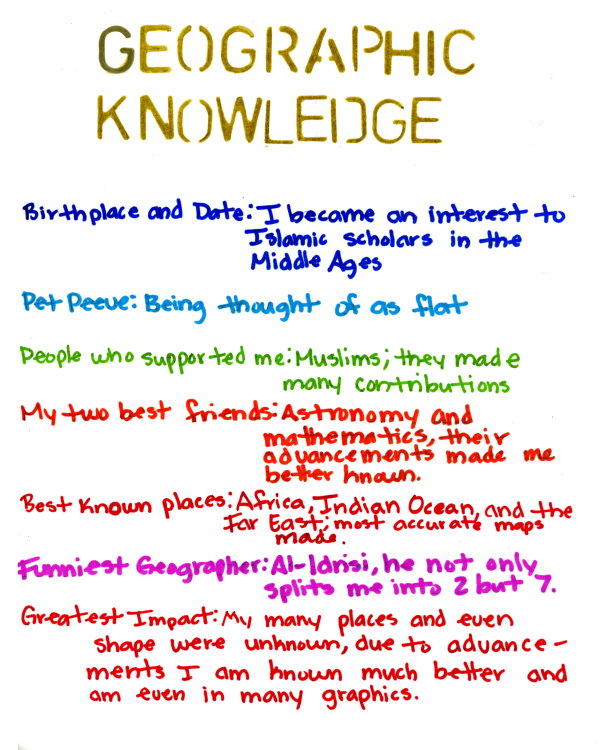 GEOGRAPHIC
KNOWLEDGE
Birthplace and Date: I became an interest to
Islamic scholars in the
Middle Ages
Pet Peeve: Being thought of as flat
People who supported me: Muslims; they made
many contributions
My two best friends: Astronomy and
mathematics, their
advancements made me
better known.
Best Known places: Africa, Indian Ocean, and the
Far East; most accurate maps
made.
Funniest Geographer: Al-Idrisi, he not only
splits me into 2 but 7.
Greatest Impact: My many places and even
shape were unknown, due to advance-
ments I am known much better and
am even in many graphics.